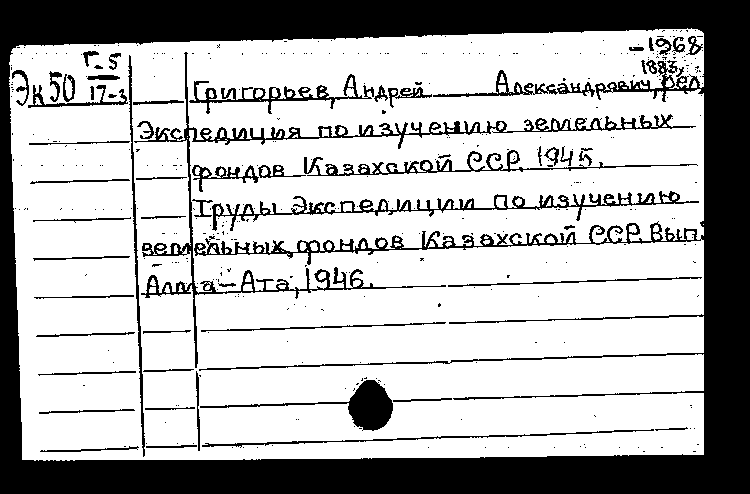 -1968
Г-5
Эк50 17-3
1883,
Григорьев, Андрей Александрович, ред.
Экспедиция по изучению земельных
фондов Казахской ССР. 1945.
Труды Экспедиции по изучению
земельных фондов Казахской ССР. Вып.
Алма-Ата, 1946.